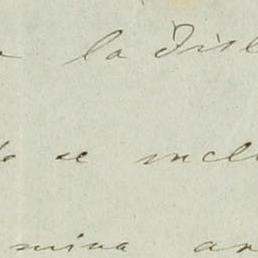 la Disl
se incl
mina an